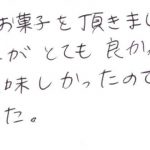 お菓子を頂きまし
がとても良かっ
味しかったので
た。